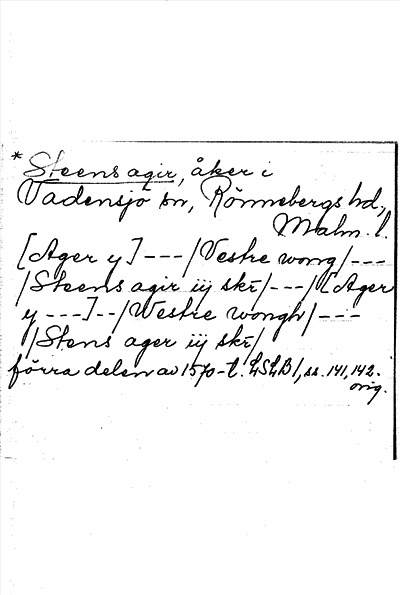 * Steens agir, åker i
Vadensjö sn, Rönnebergs hd,
Malm. l.
[Ager y] --- / Vestre wong / ---
/ Steens agir iij skr̄ / --- / [Ager
y ---] -- / Westre wongh / ---
/ Stens ager iij skr̄ /
förra delen av 1570-t. LSLB 1, ss. 141, 142.
orig.